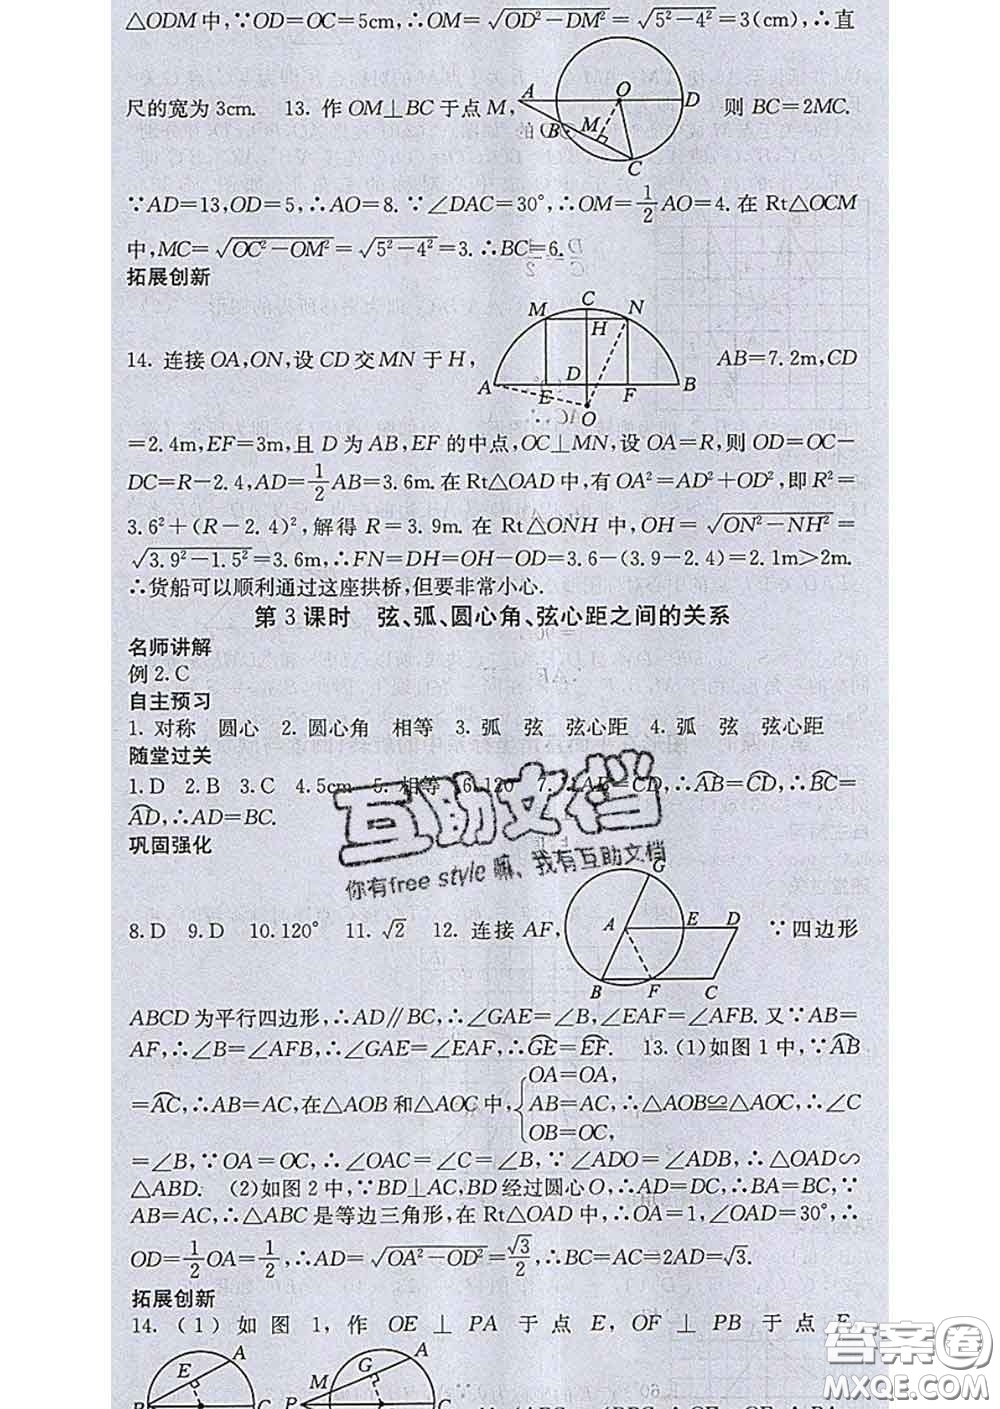 △ODM中,∵OD=OC=5cm,∴OM=√(OD²-DM²)=√(5²-4²)=3(cm),∴直
尺的宽为3cm. 13. 作OM⊥BC于点M, 则BC=2MC.
A O D B M C
∵AD=13,OD=5,∴AO=8.∵∠DAC=30°,∴OM=1/2AO=4.在Rt△OCM
中,MC=√(OC²-OM²)=√(5²-4²)=3.∴BC=6.
拓展创新
M C N H A E D F B O
14. 连接OA,ON,设CD交MN于H, AB=7.2m,CD
=2.4m,EF=3m,且D为AB,EF的中点,OC⊥MN,设OA=R,则OD=OC-
DC=R-2.4,AD=1/2AB=3.6m.在Rt△OAD中,有OA²=AD²+OD²,即R²=
3.6²+(R-2.4)²,解得R=3.9m.在Rt△ONH中,OH=√(ON²-NH²)=
√(3.9²-1.5²)=3.6m,∴FN=DH=OH-OD=3.6-(3.9-2.4)=2.1m>2m.
∴货船可以顺利通过这座拱桥,但要非常小心.
第3课时 弦、弧、圆心角、弦心距之间的关系
名师讲解
例2.C
自主预习
1. 对称 圆心 2. 圆心角 相等 3. 弧 弦 弦心距 4. 弧 弦 弦心距
随堂过关
1.D 2.B 3.C 4.5cm 5. 相等 6.120° 7.∵AB=CD,∴⌒AB=⌒CD,∴⌒BC=
⌒AD,∴AD=BC.
巩固强化
互助文档
你有free style嘛、我有互助文档
G A E D B F C
8.D 9.D 10.120° 11.√2 12. 连接AF, ∵四边形
ABCD为平行四边形,∴AD∥BC,∴∠GAE=∠B,∠EAF=∠AFB.又∵AB=
AF,∴∠B=∠AFB,∴∠GAE=∠EAF,∴⌒GE=⌒EF. 13.(1)如图1中,∵⌒AB
=⌒AC,∴AB=AC,在△AOB和△AOC中,{OA=OA, AB=AC, OB=OC, ∴△AOB≌△AOC,∴∠C
=∠B,∵OA=OC,∴∠OAC=∠C=∠B,∵∠ADO=∠ADB,∴△OAD∽
△ABD. (2)如图2中,∵BD⊥AC,BD经过圆心O,∴AD=DC,∴BA=BC,∵
AB=AC,∴△ABC是等边三角形,在Rt△OAD中,∴OA=1,∠OAD=30°,∴
OD=1/2OA=1/2,∴AD=√(OA²-OD²)=√3/2,∴BC=AC=2AD=√3.
拓展创新
14.(1)如图1,作OE⊥PA于点E,OF⊥PB于点F,
E A G A M P C
答案圈
MXQE.COM